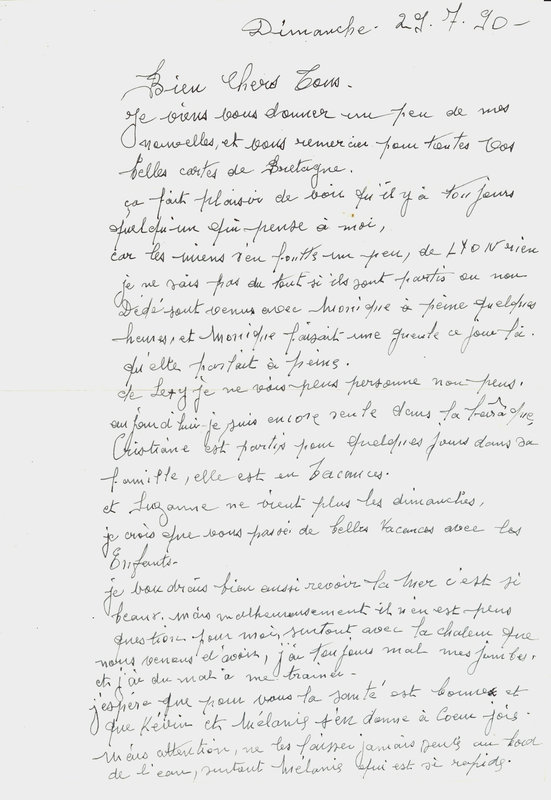 Dimanche. 29.7.90-
Bien Chers Tous.
Je viens vous donner un peu de mes
nouvelles, et vous remercier pour toutes vos
belles cartes de Bretagne.
ça fait plaisir de voir qu'il y à toujours
quelqu'un qui pense à moi,
car les miens s'en foutte un peu, de LYON rien
je ne sais pas du tout si ils sont partis ou non
Dédé sont venus avec Monique à peine quelques
heures, et Monique faisait une gueule ce jour là.
qu'elle parlait à peine.
de je ne vois pens personne non pens.
aujourd'hui je suis encore seule dans la barâque
Cristiane est partis pour quelques jours dans sa
famille, elle est en Vacances.
et Suzanne ne vient plus les dimanches,
je crois que vous passé de belles Vacances avec les
Enfants-
je voudrais bien aussi revoir la Mer c'est si
beaux. mais malheureusement il n'en est pens
question pour moi, surtout avec la chaleur que
nous venons d'avoir, j'ai toujours mal mes jambes.
et j'ai du mal a me trainer.
j'espére que pour vous la santé est bonne et
que Kévin et Mélanie s'en donne à Coeur jôie.
Mais attention, ne les laisser jamais seuls au bord
de l'eau, surtout Mélanie qui est si rapide.